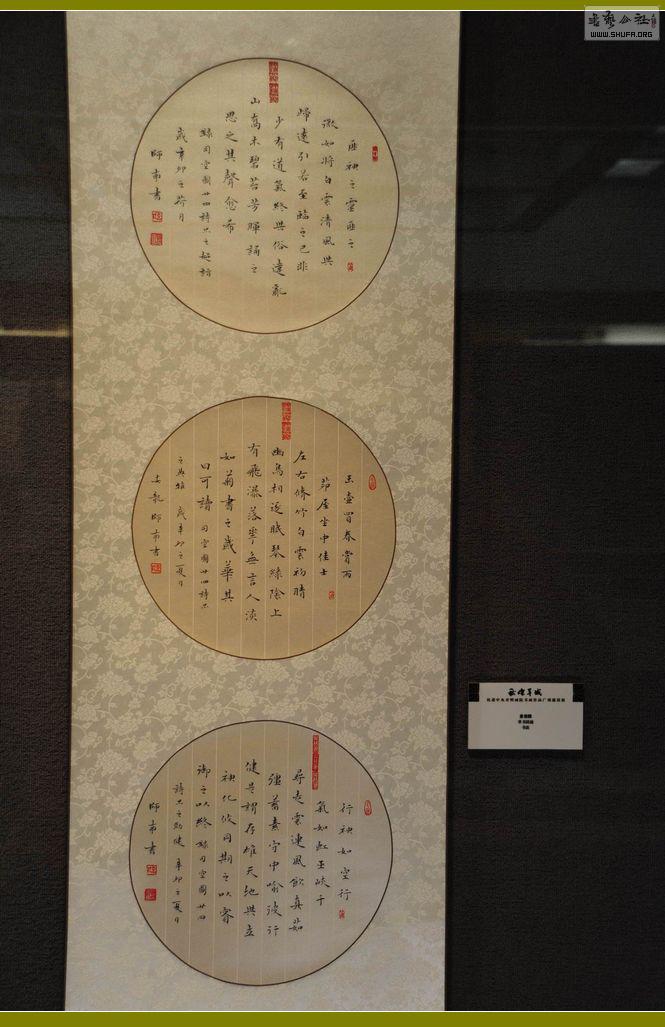 匪神之靈匪之
微如将白雲清風與
歸遠引若至臨之已非
少有道氣終與俗違亂
山喬木碧苔芳暉誦之
思之其聲愈希
錄司空圖廿四詩品之超詣
歲辛卯之荷月
師甫書
玉壺買春賞雨
茆屋坐中佳士
左右脩竹白雲初晴
幽鳥相逐眠琴綠陰上
有飛瀑落華無言人淡
如菊書之歲華其
曰可讀 司空圖廿四詩品
之典雅 歲辛卯之夏月
師甫書
行神如空行
氣如虹巫峽千
尋走雲連風飲真茹
強蓄素守中喻彼行
健是謂存雄天地與立
神化攸同期之以實
御之以終 錄司空圖廿四
詩品之勁健 辛卯之夏月
師甫書
書藝公社
WWW.SHUFA.ORG